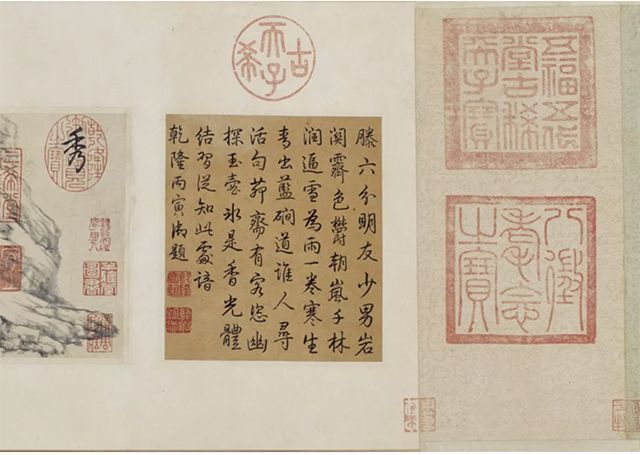 五福五代
堂古稀
天子寶
八徵
耄念
之寶
古稀天子
滕六分明友少男岩
闕霽色欝朝嵐千林
润遍雪為雨一卷寒生
青出藍磵道誰人尋
活句茆齋有客恣幽
探玉壺氷是香光體
结習從知此處諳
乾隆丙寅御題
秀